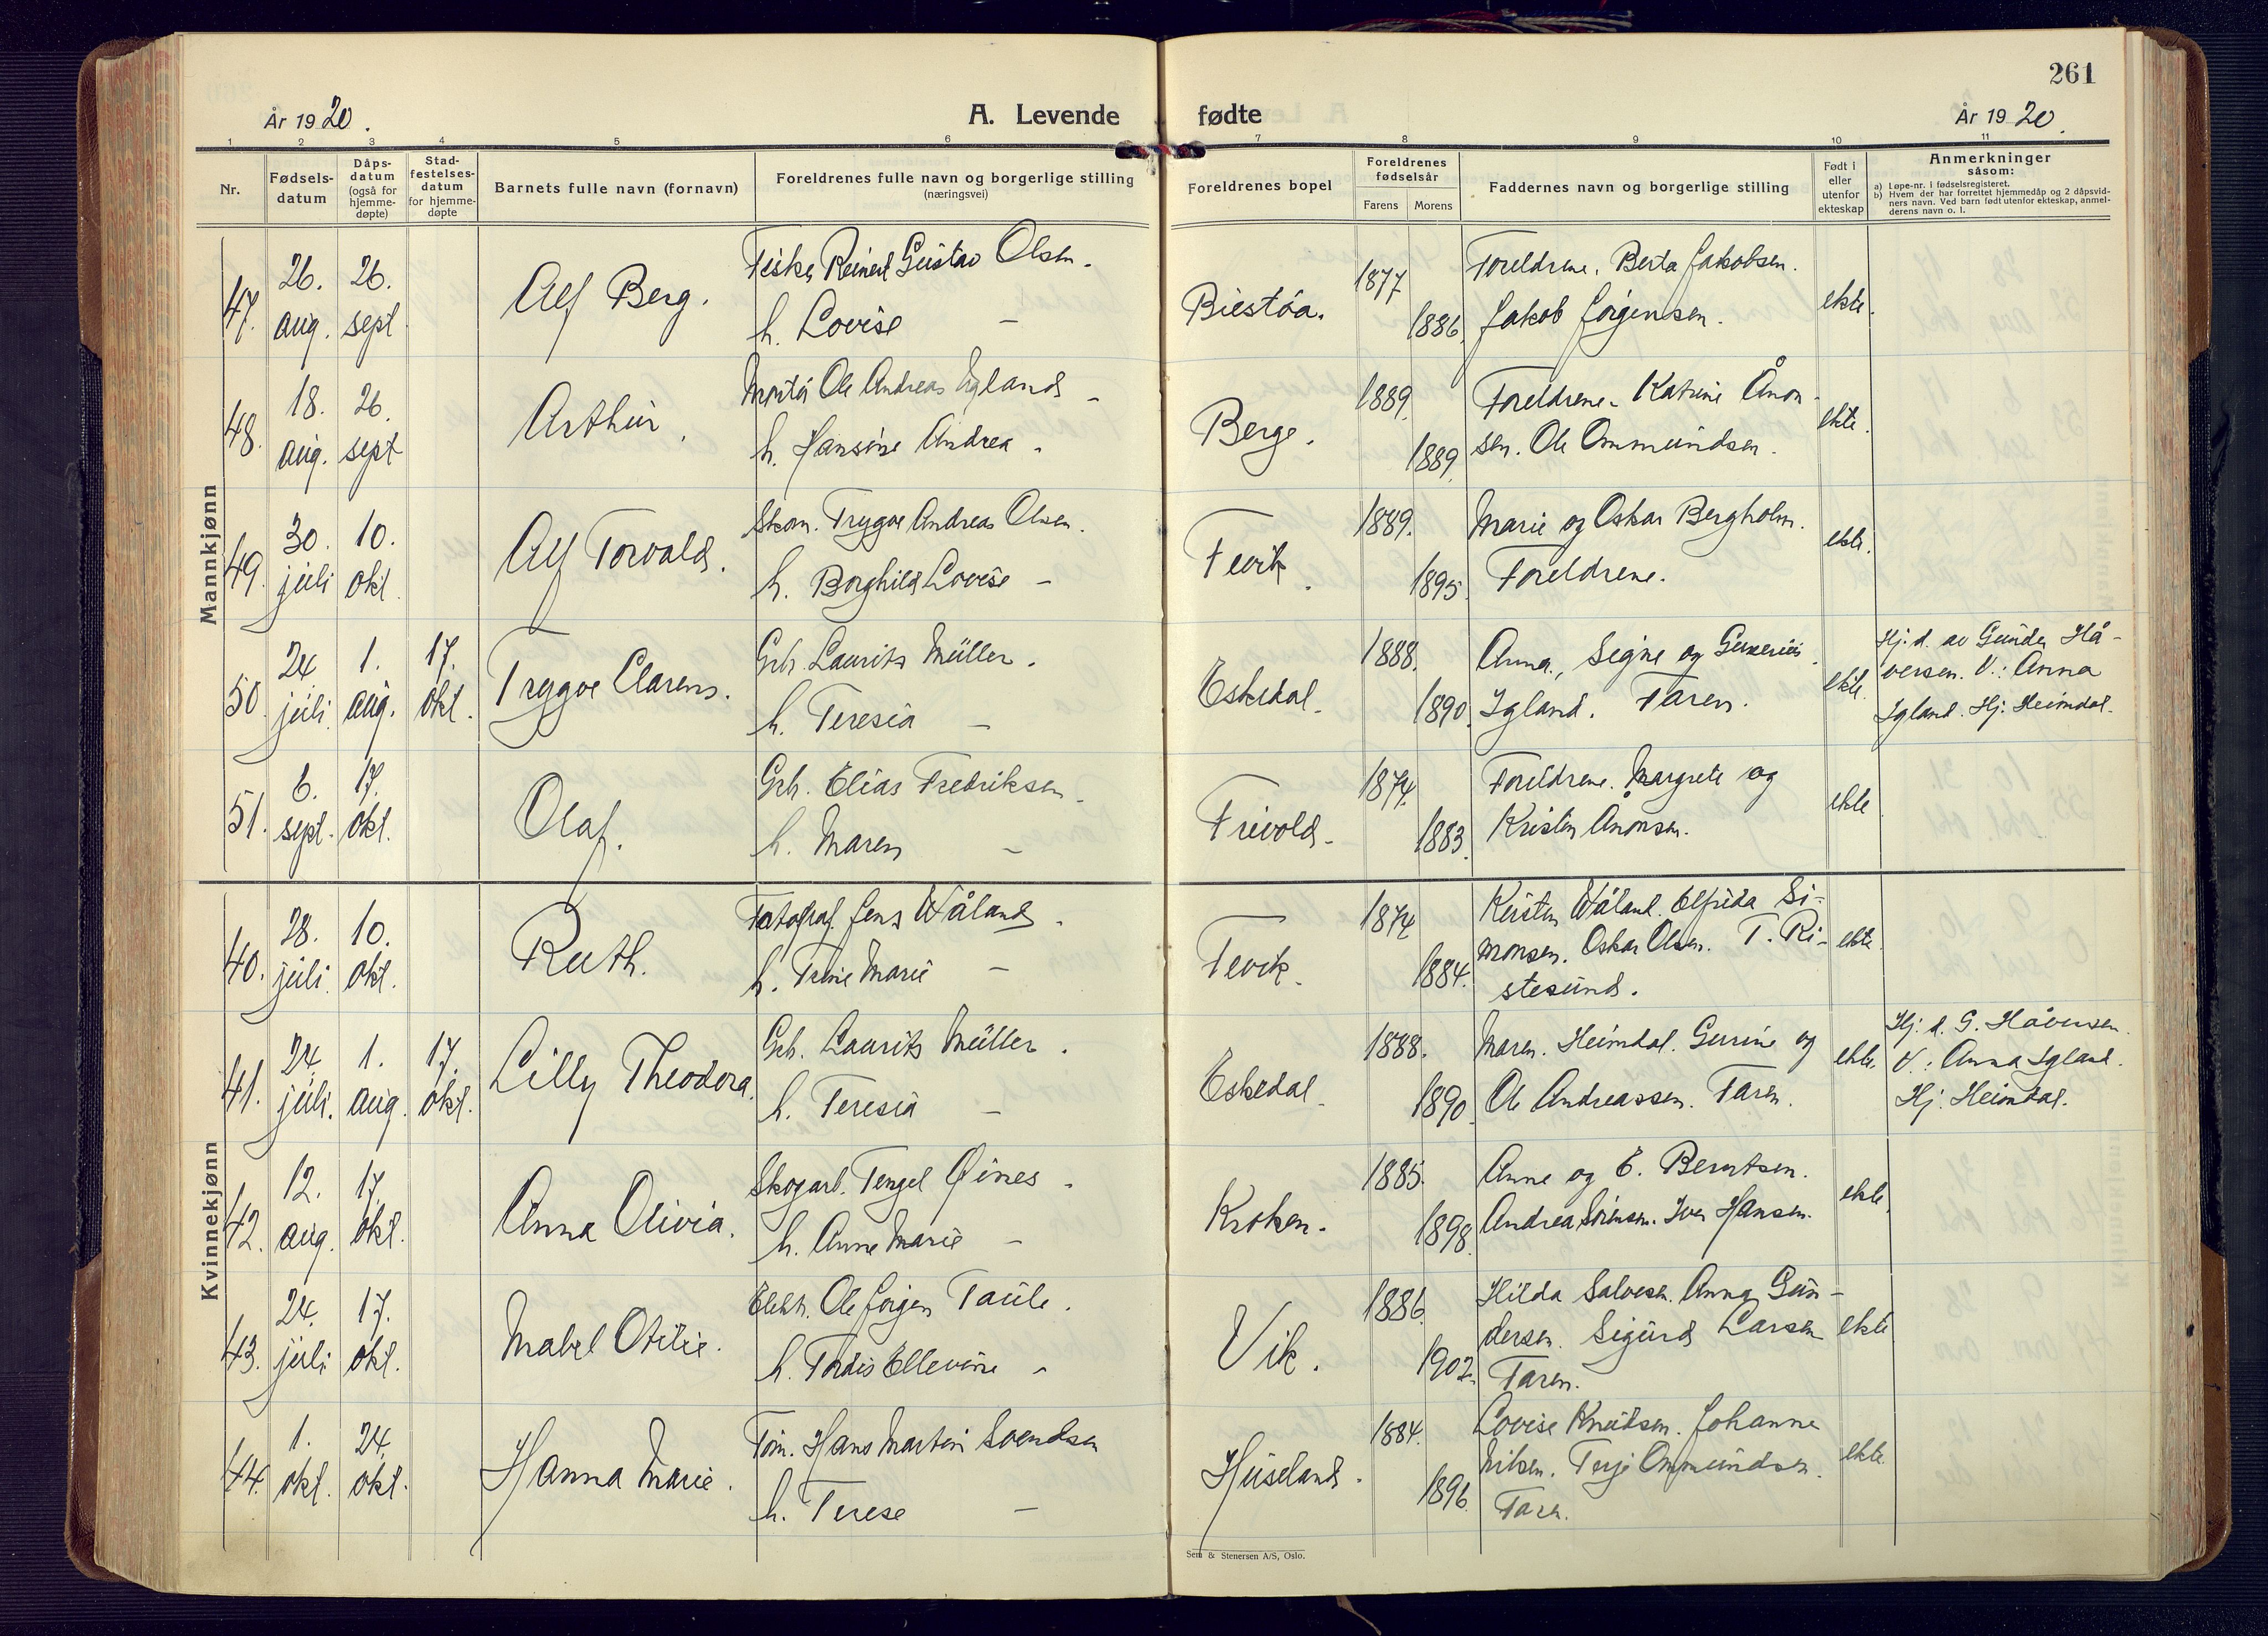 261
År 1920.
A. Levende fødte
År 1920.
1 2 3 4 5 6 7 8 9 10 11
Nr.
Fødsels-
datum
Dåps-
datum
(også for
hjemme-
døpte)
Stad-
festelses-
datum
for hjemme-
døpte
Barnets fulle navn (fornavn)
Foreldrenes fulle navn og borgerlige stilling
(næringsvei)
Foreldrenes bopel
Foreldrenes
fødselsår
Farens Morens
Faddernes navn og borgerlige stilling
Født i
eller
utenfor
ekteskap
Anmerkninger
såsom:
a) Løpe-nr. i fødselsregisteret.
b) Hvem der har forrettet hjemmedåp og 2 dåpsvid-
ners navn. Ved barn født utenfor ekteskap, anmel-
derens navn o. l.
Mannkjønn
47. 26. aug. 26. sept. Alf Berg.
Fisker Reinert Gustav Olsen.
h. Lovise —
Biestøa. 1877 1886
Foreldrene. Berta Jakobsen.
Jakob Jørgensen.
ekte.
48. 18. aug. 26. sept Arthur.
Ole Andreas Igland —
h. Hansine Andrea.
Berge. 1889. 1889
Foreldrene. Katrine Ånon-
sen. Ole Ommundsen.
ekte.
49. 30. juli 10. okt. Alf Torvald.
Skom. Trygve Andreas Olsen.
h. Borghild Lovise —
Fevik. 1889. 1895.
Marie og Oskar Bergholm.
Foreldrene.
ekte.
50. 24. juli 1. aug. 17. okt. Trygve Clarens.
Grb. Laurits Müller.
h. Teresia —
Eskedal. 1888. 1890.
Anna, Signe og
Igland. Faren.
ekte.
Hj. d. av Gunder Hå-
versen. V.: Anna
Igland. Hj. Heimdal.
51. 6. sept. 17. okt. Olaf.
Grb. Elias Fredriksen.
h. Maren —
Frivold. 1874. 1883.
Foreldrene. Margrete og
Kristen Ånonsen.
ekte
Kvinnekjønn
40. 28. juli 10. okt. Ruth.
Fotograf Jens Wåland.
h. Trine Marie —
Fevik. 1874 1884.
Kirsten Wåland. Elfrida Si-
monsen. Oskar Olsen. T. Ri-
stesund.
ekte.
41. 24. juli. 1. aug. 17. okt. Lilly Theodora.
Grb. Laurits Müller.
h. Teresia —
Eskedal. 1888. 1890.
Maren. Heimdal. Gurine og
Ole Andreassen. Faren.
ekte.
Hj. d. G. Håversen.
V.: Anna Igland.
Hj. Heimdal.
42. 12. aug. 17. okt. Anna Olivia.
Skogarb. Tengel Øines.
h. Anne Marie —
Kroken. 1885. 1898.
Anne og E. Berntsen.
Andrea Sørensen. Iver Hansen.
ekte.
43. 24. juli 17. okt. Mabel Otilie.
Elektr. Ole Jørgen Taule.
h. Tordis Ellevine —
Vik. 1886 1902.
Hilda Salvesen. Anna Gun-
dersen. Sigurd Larsen
Faren.
ekte
44. 1. okt. 24. okt. Hanna Marie.
Tøm. Hans Martin Svendsen
h. Terese —
Huseland. 1884. 1896.
Lovise Knudsen. Johanne
Nilsen. Terje Ommundsen.
Faren.
ekte.
Sem & Stenersen A/S, Oslo.